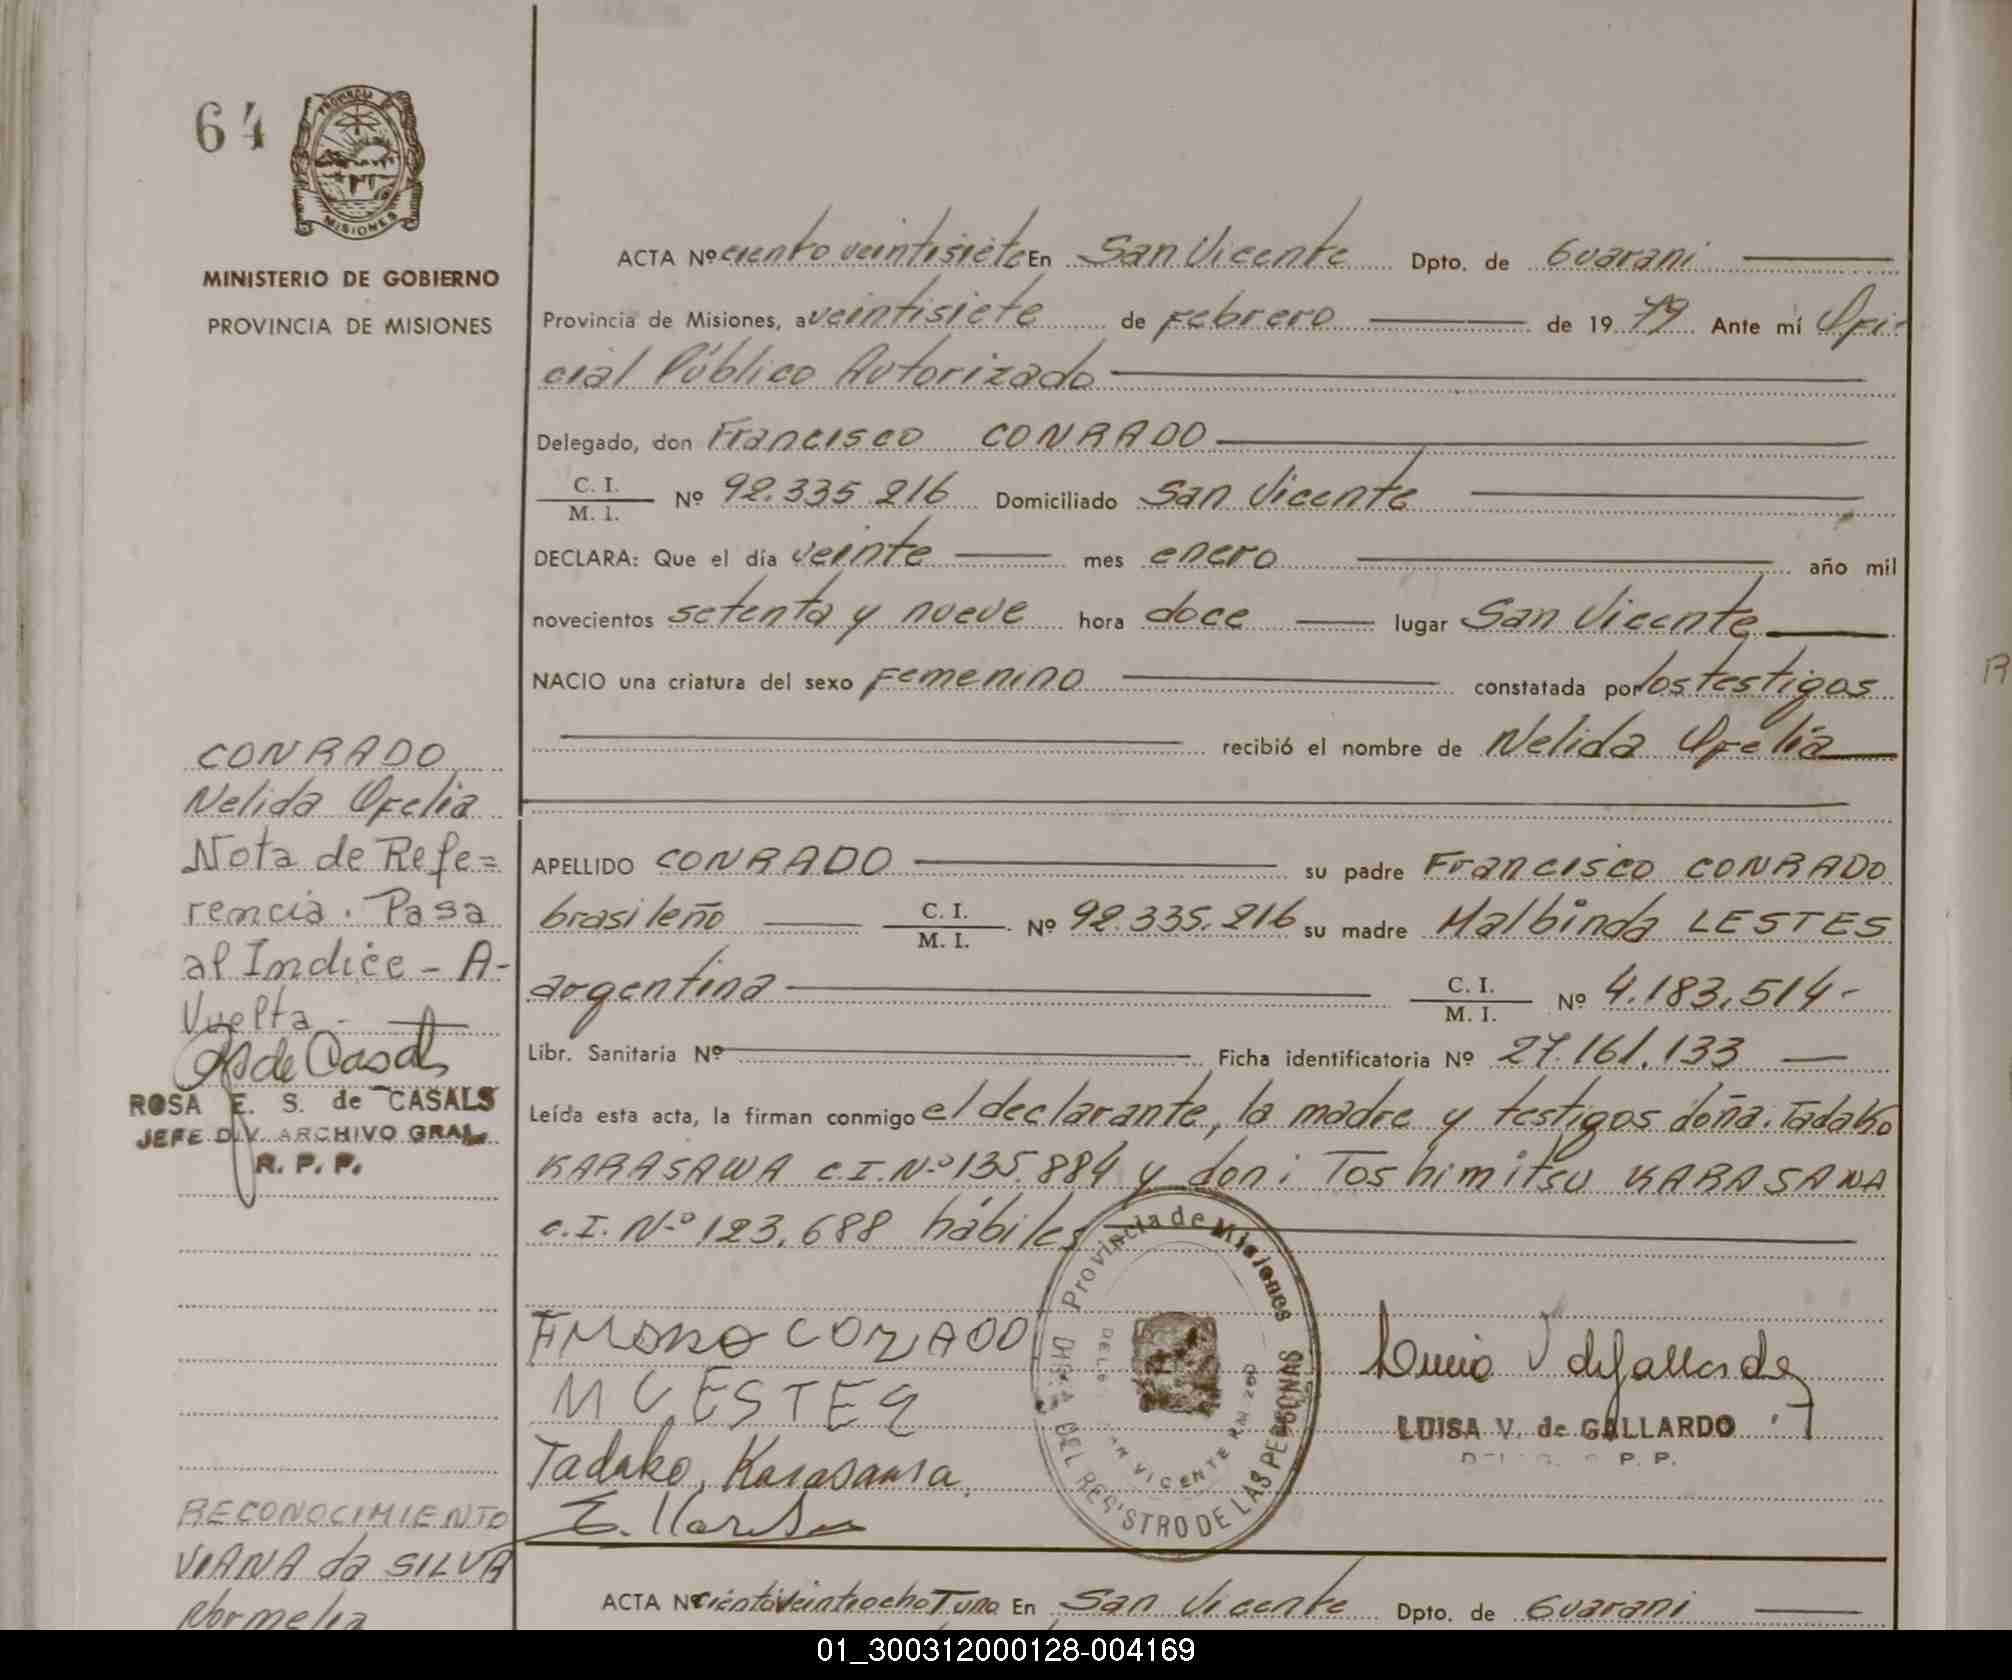 64
PROVINCIA DE
MISIONES
MINISTERIO DE GOBIERNO
PROVINCIA DE MISIONES
ACTA Nº ciento veintisiete En San Vicente Dpto. de Guarani
Provincia de Misiones, a veintisiete de Febrero de 19 79 Ante mí Ofi-
cial Público Autorizado
Delegado, don Francisco CONRADO
C. I.
M. I. Nº 92.335.216 Domiciliado San Vicente
DECLARA: Que el día veinte mes enero año mil
novecientos setenta y nueve hora doce lugar San Vicente
NACIO una criatura del sexo Femenino constatada por los testigos
recibió el nombre de Nelida Ofelia
CONRADO
Nelida Ofelia
Nota de Refe=
rencia. Pasa
al Indice - A-
Vuelta.-
ROSA E. S. de CASALS
JEFE DIV. ARCHIVO GRAL.
R. P. P.
APELLIDO CONRADO su padre Francisco CONRADO
brasileño C. I.
M. I. Nº 92.335.216 su madre Malbinda LESTES
argentina C. I.
M. I. Nº 4.183.514-
Libr. Sanitaria Nº Ficha identificatoria Nº 27.161.133
Leída esta acta, la firman conmigo el declarante, la madre y testigos doña. Tadako
KARASAWA C.I.N.º 135.884 y don: Toshimitsu KARASAWA
C.I. N.º 123.688 hábiles
Provincia de Misiones
DEL REGISTRO DE LAS PERSONAS
MLESTES
Tadako, Karasawa
LUISA V. de GALLARDO
R. P. P.
RECONOCIMIENTO
VIANA da SILVA
Normelia
ACTA Nº ciento veintiocho Tuno En San Vicente Dpto. de Guarani
01_300312000128-004169